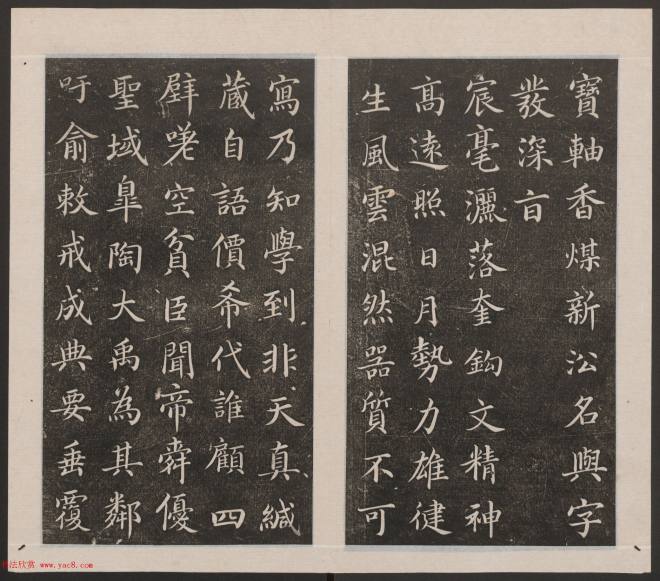 寶軸香煤新㳂名與字
裝深盲
宸毫灑落奎鈎文精神
高遠照日月勢力雄健
生風雲混然器質不可
寫乃知學到非天真緘
蔵自語價希代誰顧四
壁嘆空貧臣聞帝舜優
聖域臯陶大禹為其鄰
吁俞敕戒成典要垂覆
书法欣赏 www.yac8.com